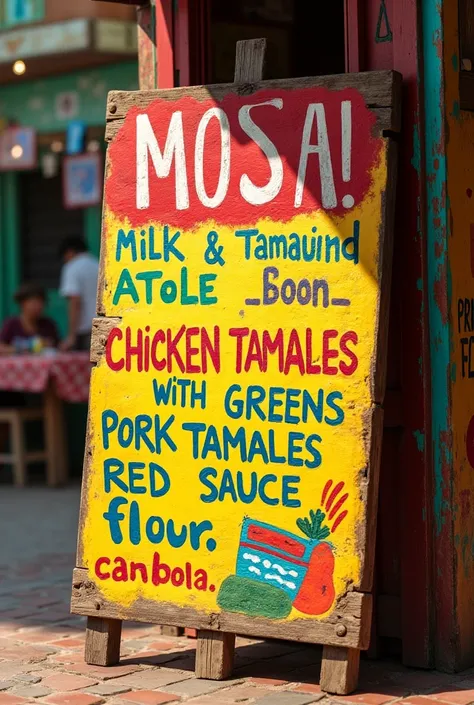 MOSA!
Milk & Tamauind
ATOLE _Boon_
CHICKEN TAMALES
WITH GREENS
PORK TAMALES
RED SAUCE
flour.
canbola.